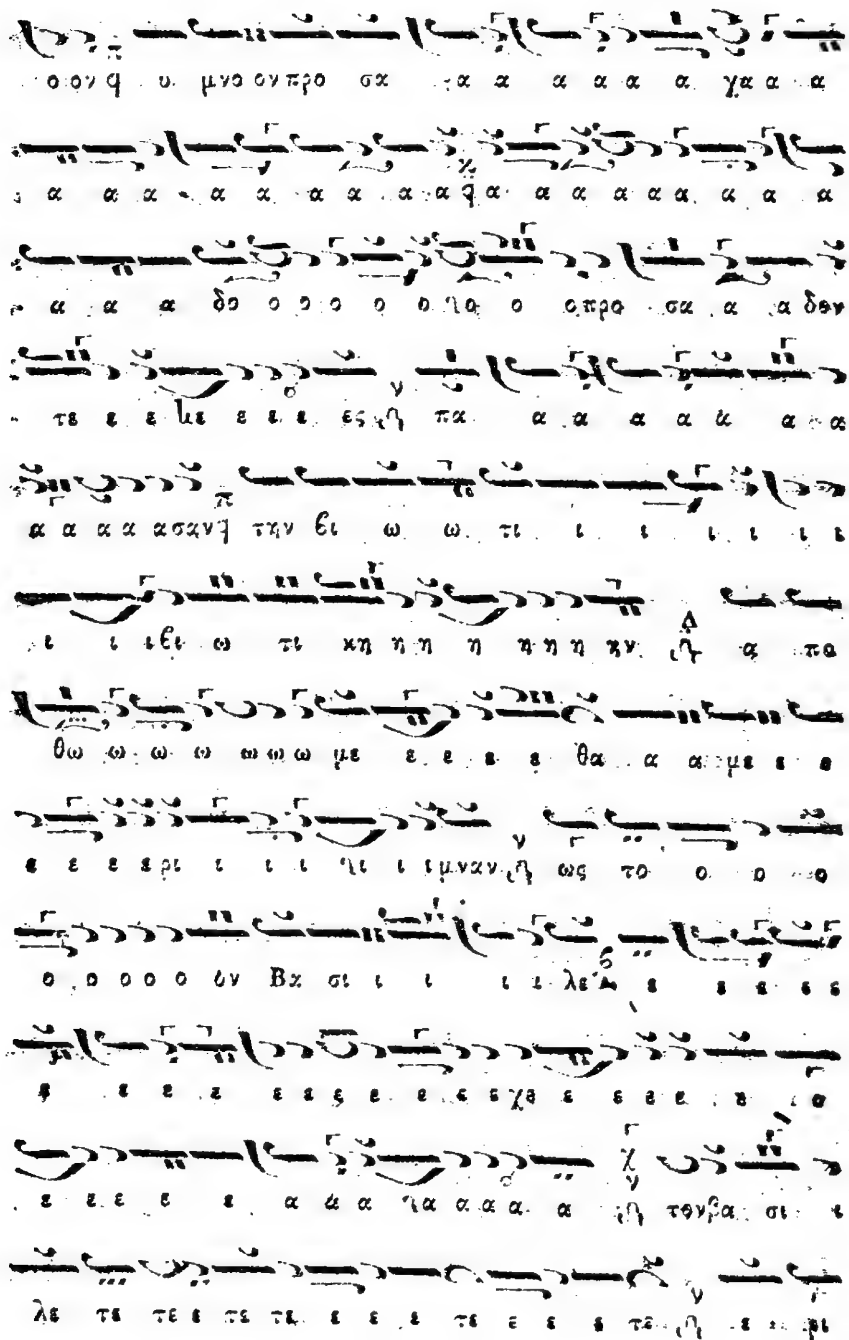 ο ον q υ μνο ον προ σα α α α α α α χα α α
α α α α α α α α α α q α α α α α α α α α
α α α δο ο ο ο ο ο ο ο ο προ σα α α α δον
τε ε ε με ε ε ε ες ν πα α α α α α α α
α α α α α σαν q π την βι ω ω τι ι ι ι ι ι ι
ι ι ι βι ω τι κη η η η η η η ην Δ α πο
θω ω ω ω ω ω ω με ε ε ε ε θα α α με ε ε
ε ε ε ε ρι ι ι ι ι ι ι μναν ν ως το ο ο ο
ο ο ο ο ο ον Βα σι ι ι ι ι λε ε ε ε ε ε
ε ε ε ε ε ε ε ε ε ε ε χε ε ε ε ε ε α
ε ε ε ε ε α α α α α α α α χ ν τον βα σι ι
λε τε τε ε τε τε ε ε ε τε ε ε ε τε ν ε ρι